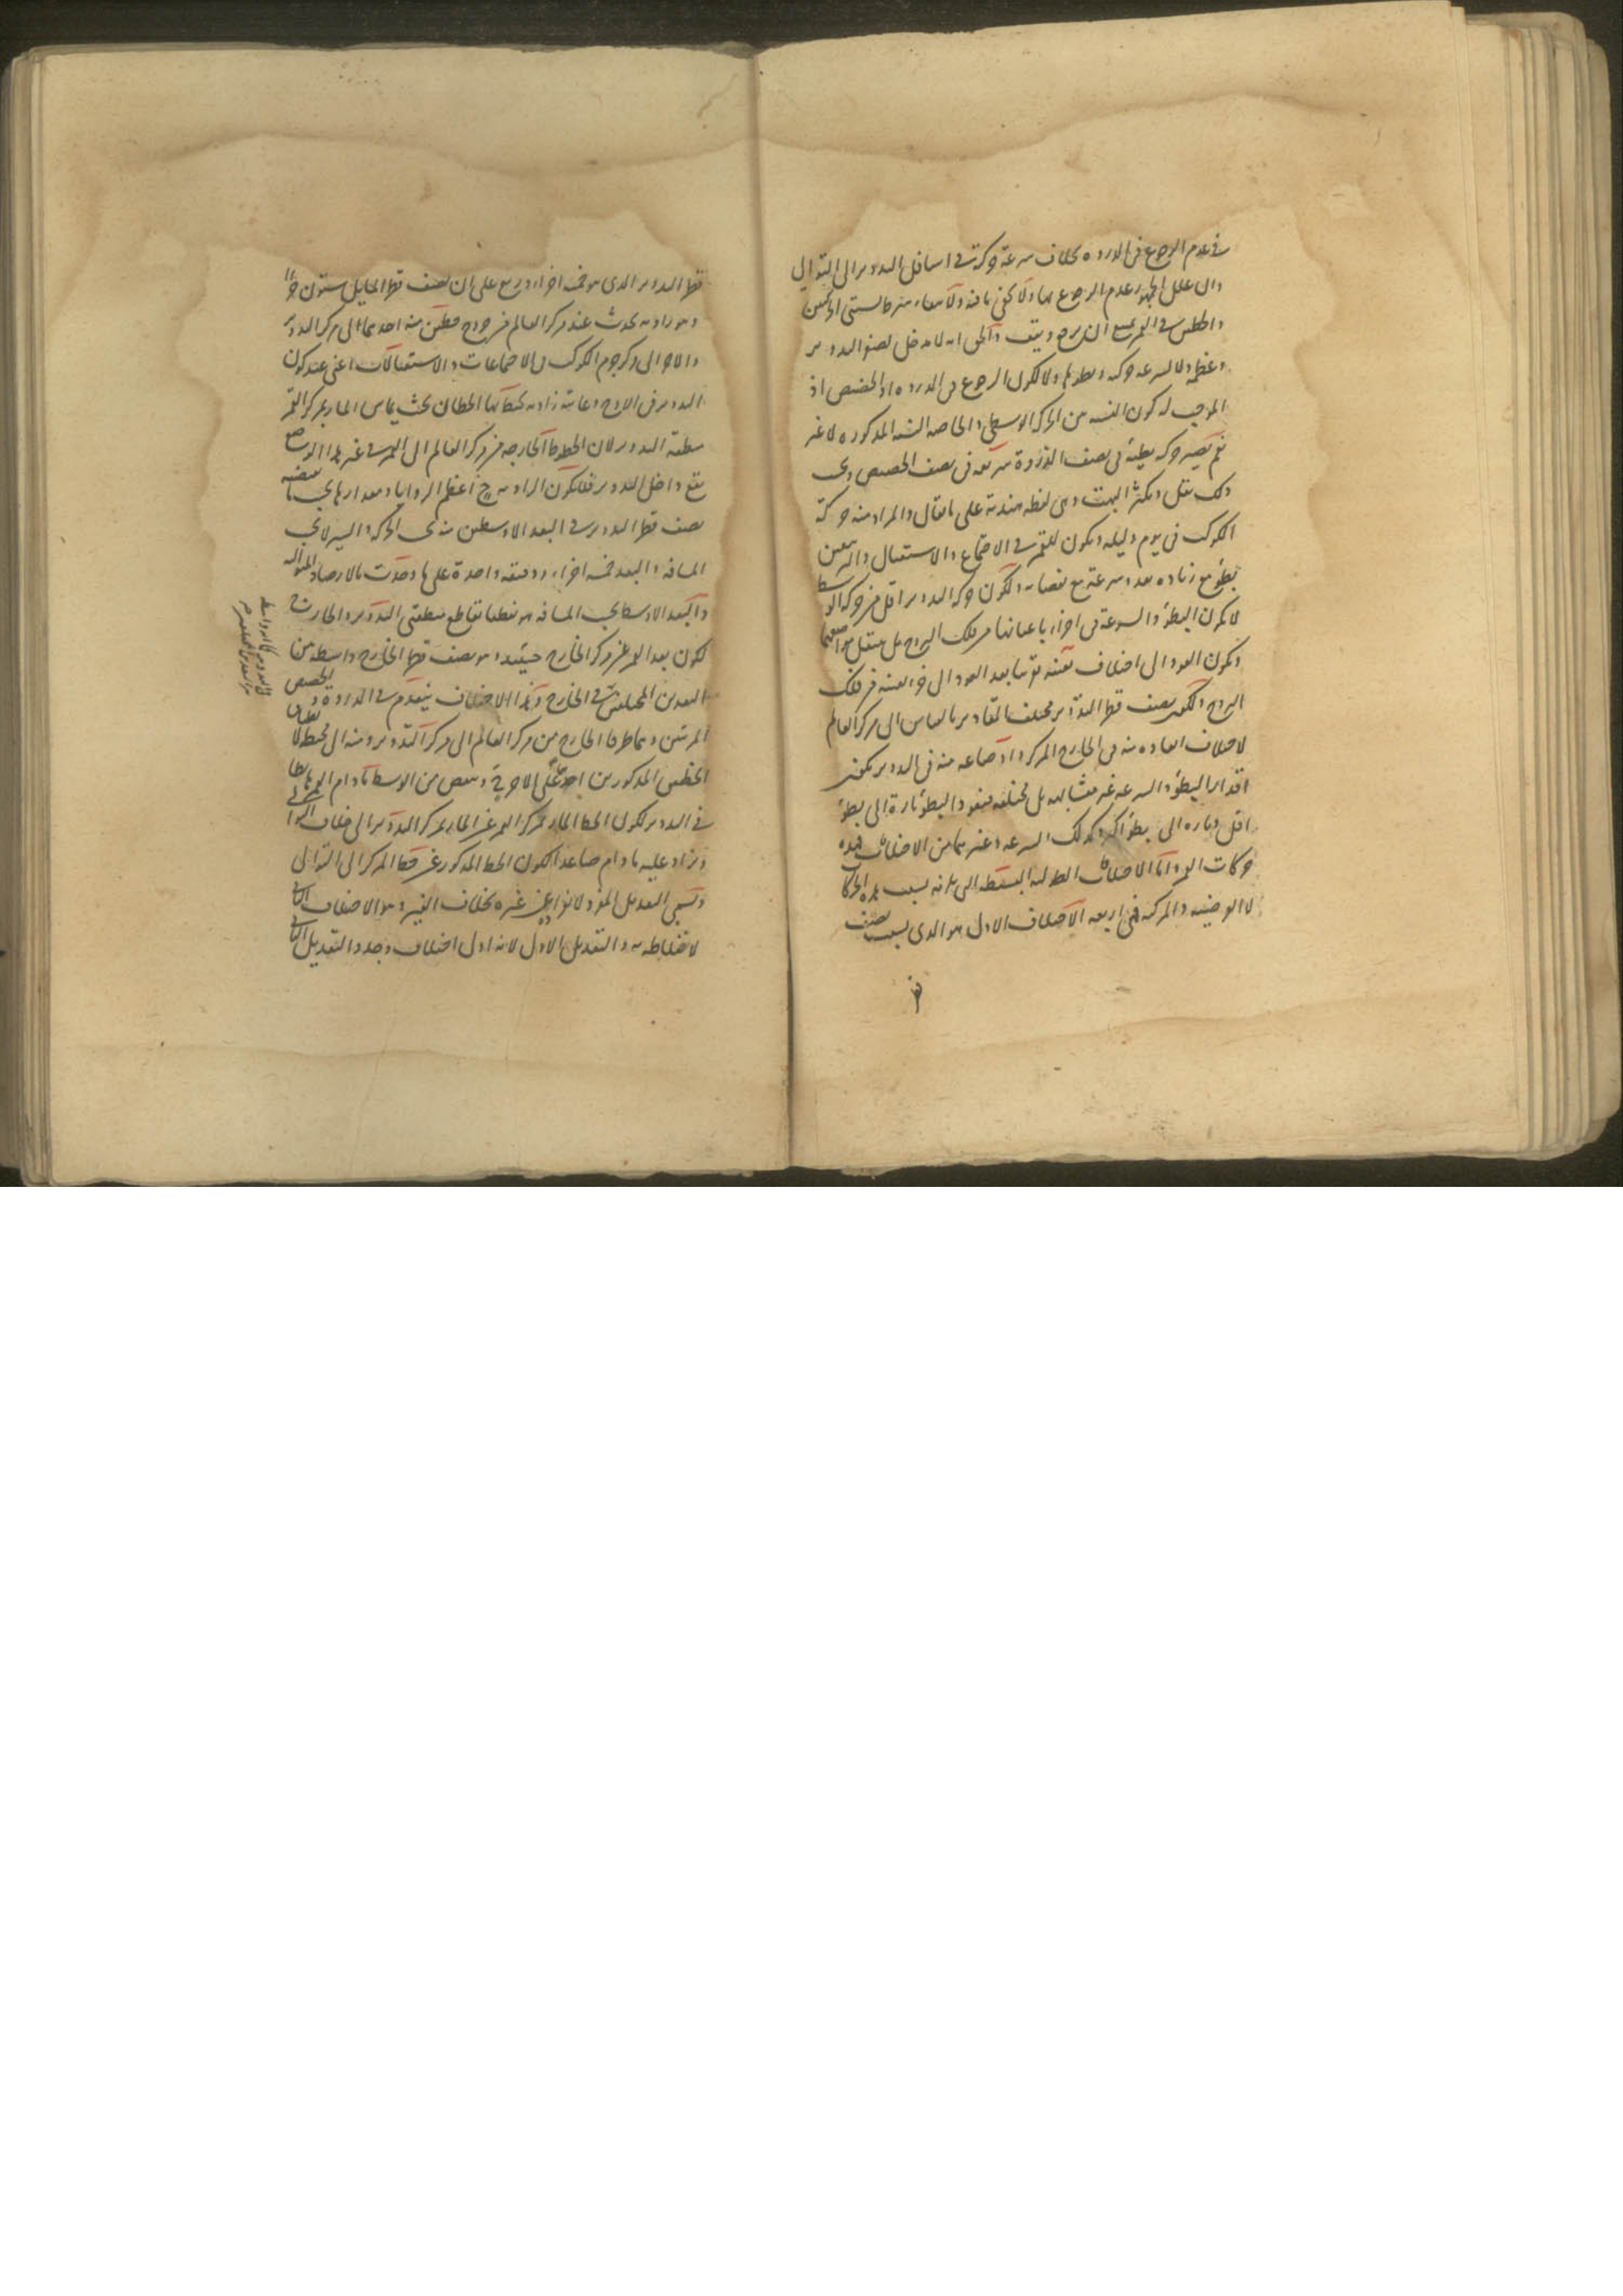 في عدم الرجوع في الذروه بخلاف سرعة حركته في اسافل التدوير الى التوالي
وان علل الجمهور عدم الرجوع بها ولا يخفى ما فيه
والحق انه لا مدخل لصغر التدوير
وعظمه ولا لسرعه حركه وبطوها ولا لكون الرجوع في الذروه او الحضيض اذ
الموجب له كون النسبه من الحركه الوسطى والخاصه النسبه المذكوره لا غير
نعم يصير حركه بطيئه في نصف الذروة سريعه في نصف الحضيض
ذلك يقل ويكثر البهت وهى لفظه هنديه على ما يقال والمراد منه حركة
الكوكب في يوم وليله ويكون للقمر في الاجتماع والاستقبال والتربيعين
بطؤ مع زياده بعد وسرعة مع نقصانه ولكون حركه التدوير اقل من حركه الوسط
لا يكون البطؤ والسرعة في اجزاء باعيانها من فلك البروج بل ينتقل مواضعهما
ويكون العود الى اختلاف بعينه قريبا بعد العود الى جزء بعينه من فلك
البروج ولكون نصف قطر التدوير مختلف المقادير بالقياس الى مركز العالم
لاختلاف ابعاده منه في الخارج المركز واوضاعه منه في التدوير يكون
اقدار البطؤ والسرعه غير متشابهه بل مختلفه فيعود البطؤ تارة الى بطؤ
اقل وتاره الى بطؤ اكثر وكذلك السرعه وغيرهما من الاختلافات فهذه
حركات القمر واما الاختلافات الطوليه البسيطه التى يلزمه بسبب هذه الحركات
لا العرضيه والمركبه فهى اربعه الاختلاف الاول هو الذى بسبب نصف
قطر التدوير الذى هو خمسه اجزاء وربع على ان نصف قطر الحامل ستون جزءا
وهو زاويه تحدث عند مركز العالم من خروج خطين منه احدهما الى مركز التدوير
والاخر الى مركز جرم الكوكب في الاجتماعات والاستقبالات اعنى عند كون
التدوير في الاوج وغايته زاويه يحيط بها الخطان بحيث يماس المار بمركز القمر
منطقه التدوير لان الخطوط الخارجه من مركز العالم الى القمر في غير هذا الوضع
يقع داخل التدوير فلا يكون الزاويه ح اعظم الزوايا ومقدارها بحسب ما يقتضيه
نصف قطر التدوير في البعد الاوسط
المسافه والبعد خمسه اجزاء ودقيقه واحدة على ما وجدت بالارصاد المتواليه
والبعد الاوسط بحسب المسافه هو نقطتا تقاطع منطقتى التدوير والخارج
لكون بعد القمر عن مركز الخارج حينئذ هو نصف قطر الخارج واسطه بين
البعدين المختلفين في الخارج وهذا الاختلاف ينعدم في الذروة والحضيض
المرئيين وهما طرفا الخارج من مركز العالم الى مركز التدوير ومنه الى محيطه لانطباق
الخطين المذكورين احدهما على الاخر وينقص من الوسط ما دام القمر هابطا
في التدوير لكون الخط المار بمركز القمر عن المار بمركز التدوير الى خلاف التوالى
ويزاد عليه ما دام صاعدا لكون الخط المذكور عن خط المركز الى التوالى
وتسمى التعديل المفرد لانفراده عن غيره بخلاف الغير وهو الاختلاف الثانى
لاختلاطه به والتعديل الاول لانه اول اختلاف وجد والتعديل الثانى